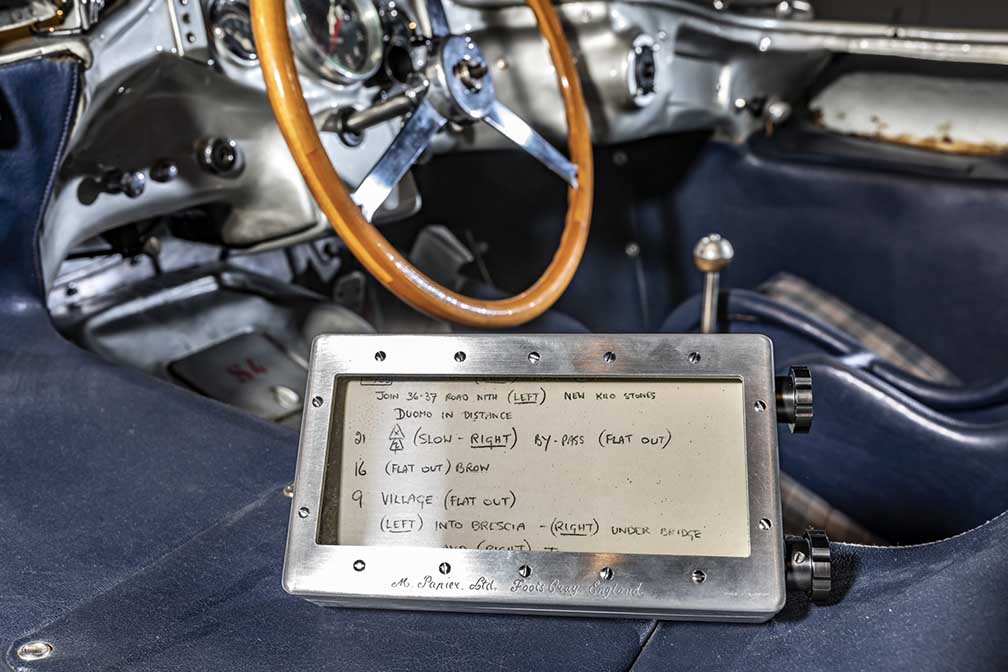 JOIN 36-37 ROAD WITH (LEFT) NEW KILO STONES
DUOMO IN DISTANCE
21 (SLOW - RIGHT) BY-PASS (FLAT OUT)
16 (FLAT OUT) BROW
9 VILLAGE (FLAT OUT)
(LEFT) INTO BRESCIA - (RIGHT) UNDER BRIDGE
AND (RIGHT)
M. Papier. Ltd. Foots Cray. England